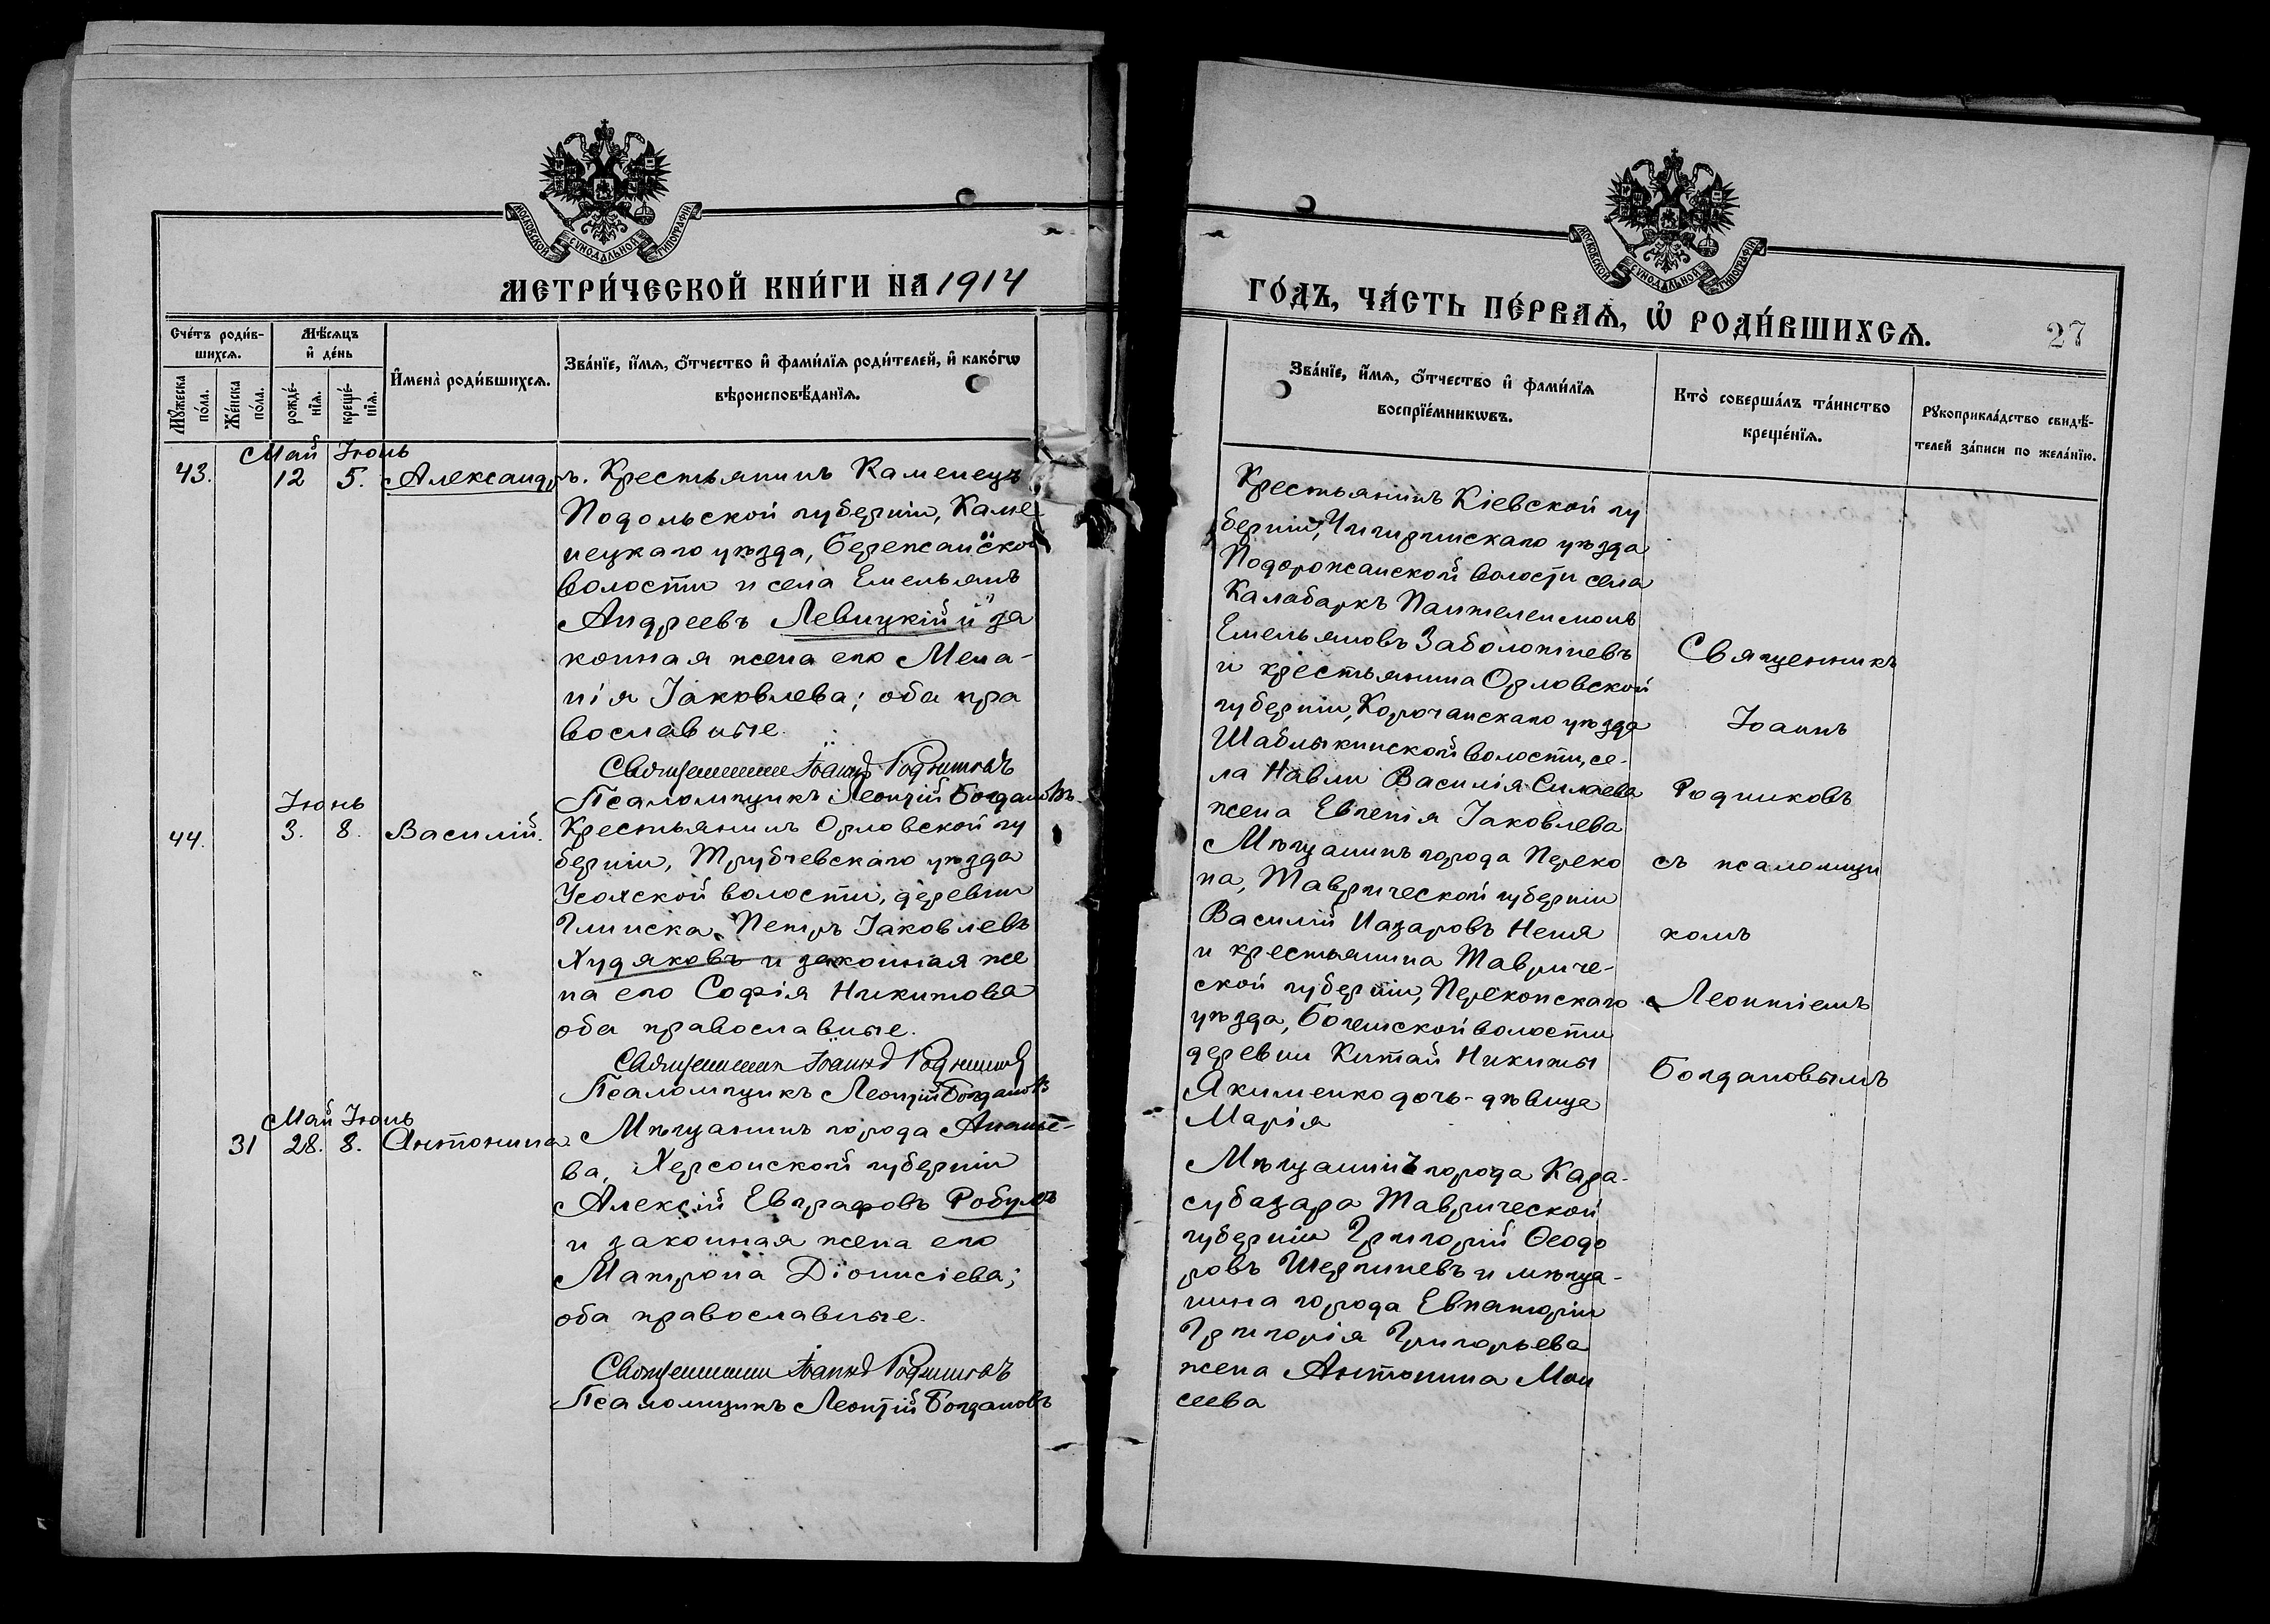 МОСКОВСКОЙ СѴНОДАЛЬНОЙ ТИПОГРАФІИ
МЕТРИ́ЧЕСКОЙ КНИ́ГИ НА 1914
Сче́тъ роди́в-
шихся.
Мѣ́сяцъ
и҆ де́нь
Мꙋ́жеска
по́ла.
Же́нска
по́ла.
рожде́-
нїя.
креще́-
нїя.
И҆мена̀ роди́вшихся.
Зва́нїе, и҆́мя, ѻ҆́тчество и҆ фами́лїя роди́телей, и҆ како́гѡ
вѣроисповѣ́данїя.
Май Іюнь
43. 12 5. Александръ. Крестьянинъ Каменецъ
Подольской губерніи, Каме
нецкаго уѣзда, Бережанской
волости и села Емельянъ
Андреевъ Левицкій и за
конная жена его Мела-
нія Іаковлева; оба пра
вославные.
Священникъ Іоаннъ Родниковъ
Псаломщикъ Леонтій Богдановъ.
Іюнь
44. 3. 8. Василій. Крестьянинъ Орловской гу
берніи, Трубчевскаго уѣзда
Усохской волости, деревни
Глинска, Петръ Іаковлевъ
Худяковъ и законная же
на его Софія Никитова
оба православные.
Священникъ Іоаннъ Родниковъ
Псаломщикъ Леонтій Богдановъ
Май Іюнь
31 28. 8. Антонина Мѣщанинъ города Ананье-
ва, Херсонской губерніи
Алексій Евграфовъ Робулъ
и законная жена его
Матрона Діонисіева;
оба православные.
Священникъ Іоаннъ Родниковъ
Псаломщикъ Леонтій Богдановъ
МОСКОВСКОЙ СѴНОДАЛЬНОЙ ТИПОГРАФІИ
ГО́ДЪ, ЧА́СТЬ ПЕ́РВАЯ, Ѡ҆ РОДИ́ВШИХСЯ.
27
Зва́нїе, и҆́мя, ѻ҆́тчество и҆ фами́лїя
воспрїе́мникѡвъ.
Кто̀ соверша́лъ та́инство
креще́нїя.
Рꙋкоприкла́дство свидѣ́-
телей за́писи по жела́нїю.
Крестьянинъ Кіевской гу
берніи, Чигиринскаго уѣзда
Подорожанской волости села
Калабаркъ Пантелеимонъ
Емельяновъ Заболотневъ
и крестьянина Орловской
губерніи, Корочанскаго уѣзда
Шаблыкинской волости, се-
ла Навли Василія Силаева
жена Евгенія Іаковлева
Мѣщанинъ города Переко
па, Таврической губерніи
Василій Назаровъ Неня
и крестьянина Тавриче-
ской губерніи, Перекопскаго
уѣзда, Богемской волости
деревни Китай Никиты
Якименко дочь-дѣвица
Марія
Мѣщанинъ города Кара-
субазара Таврической
губерніи Григорій Ѳеодо
ровъ Шергиневъ и мѣща-
нина города Евпаторіи
Григорія Григорьева
жена Антонина Мои
сеева
Священникъ
Іоаннъ
Родниковъ
съ псаломщи
комъ
Леонтіемъ
Богдановымъ